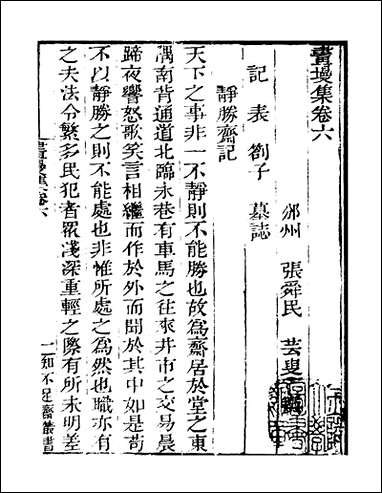 畫墁集卷六
邠州 張舜民 芸叟
記 表 劄子 墓誌
靜勝齋記
天下之事非一不靜則不能勝也故爲齋居於堂之東
隅南背通道北臨永巷有車馬之往來井市之交易晨
蹄夜響怒歌笑言相繼而作於外而聞於其中如是苟
不以靜勝之則不能處也非惟所處之爲然也職亦有
之夫法令繁多民犯者眾淺深重輕之際有所未明差
畫墁集卷六
一
知不足齋叢書